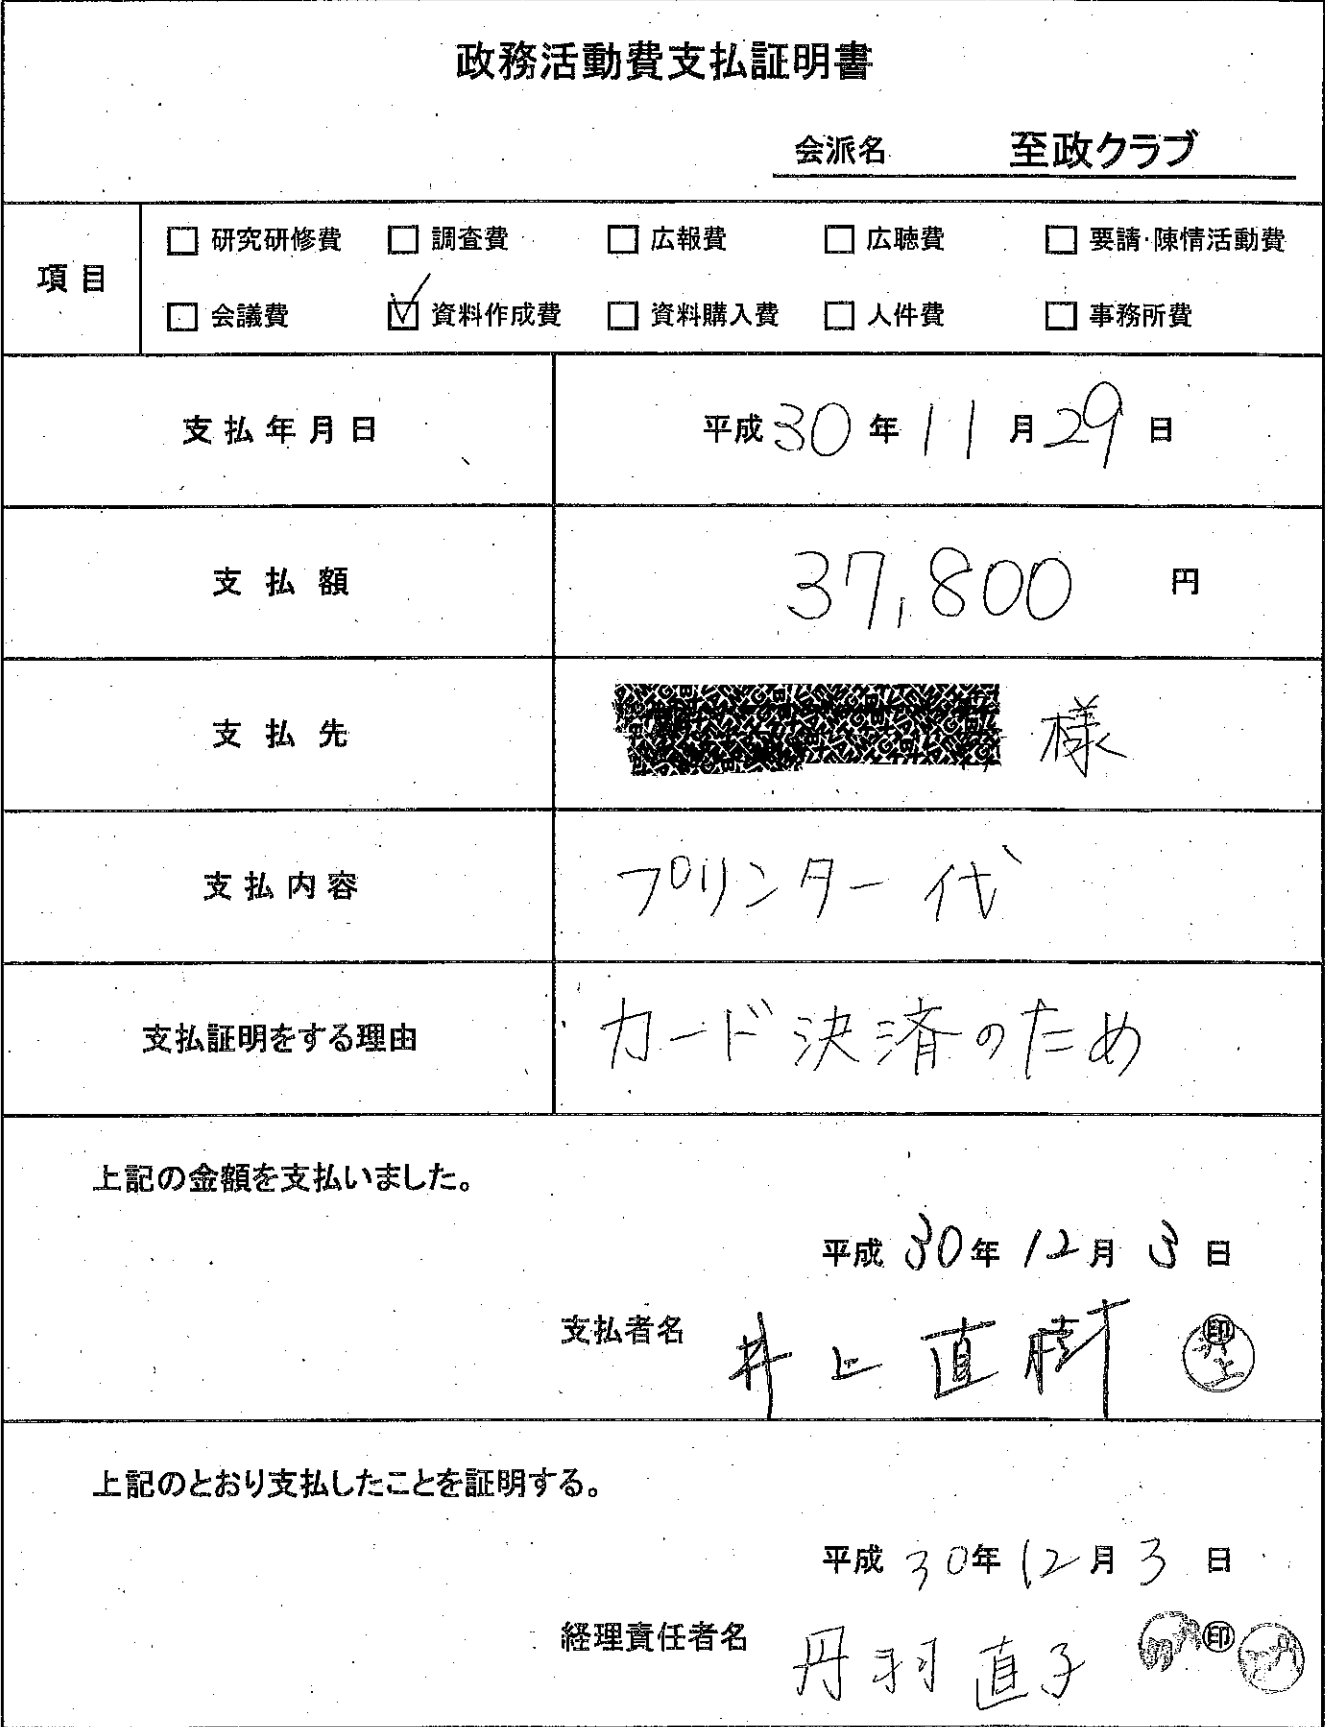 政務活動費支払証明書
会派名 至政クラブ
項目
□ 研究研修費 □ 調査費 □ 広報費 □ 広聴費 □ 要請・陳情活動費
□ 会議費 ☑ 資料作成費 □ 資料購入費 □ 人件費 □ 事務所費
支払年月日 平成30年11月29日
支払額 37,800 円
支払先 様
支払内容 プリンター代
支払証明をする理由 カード決済のため
上記の金額を支払いました。
平成30年12月3日
支払者名 井上直樹 印 井上
上記のとおり支払したことを証明する。
平成30年12月3日
経理責任者名 丹羽直子 印